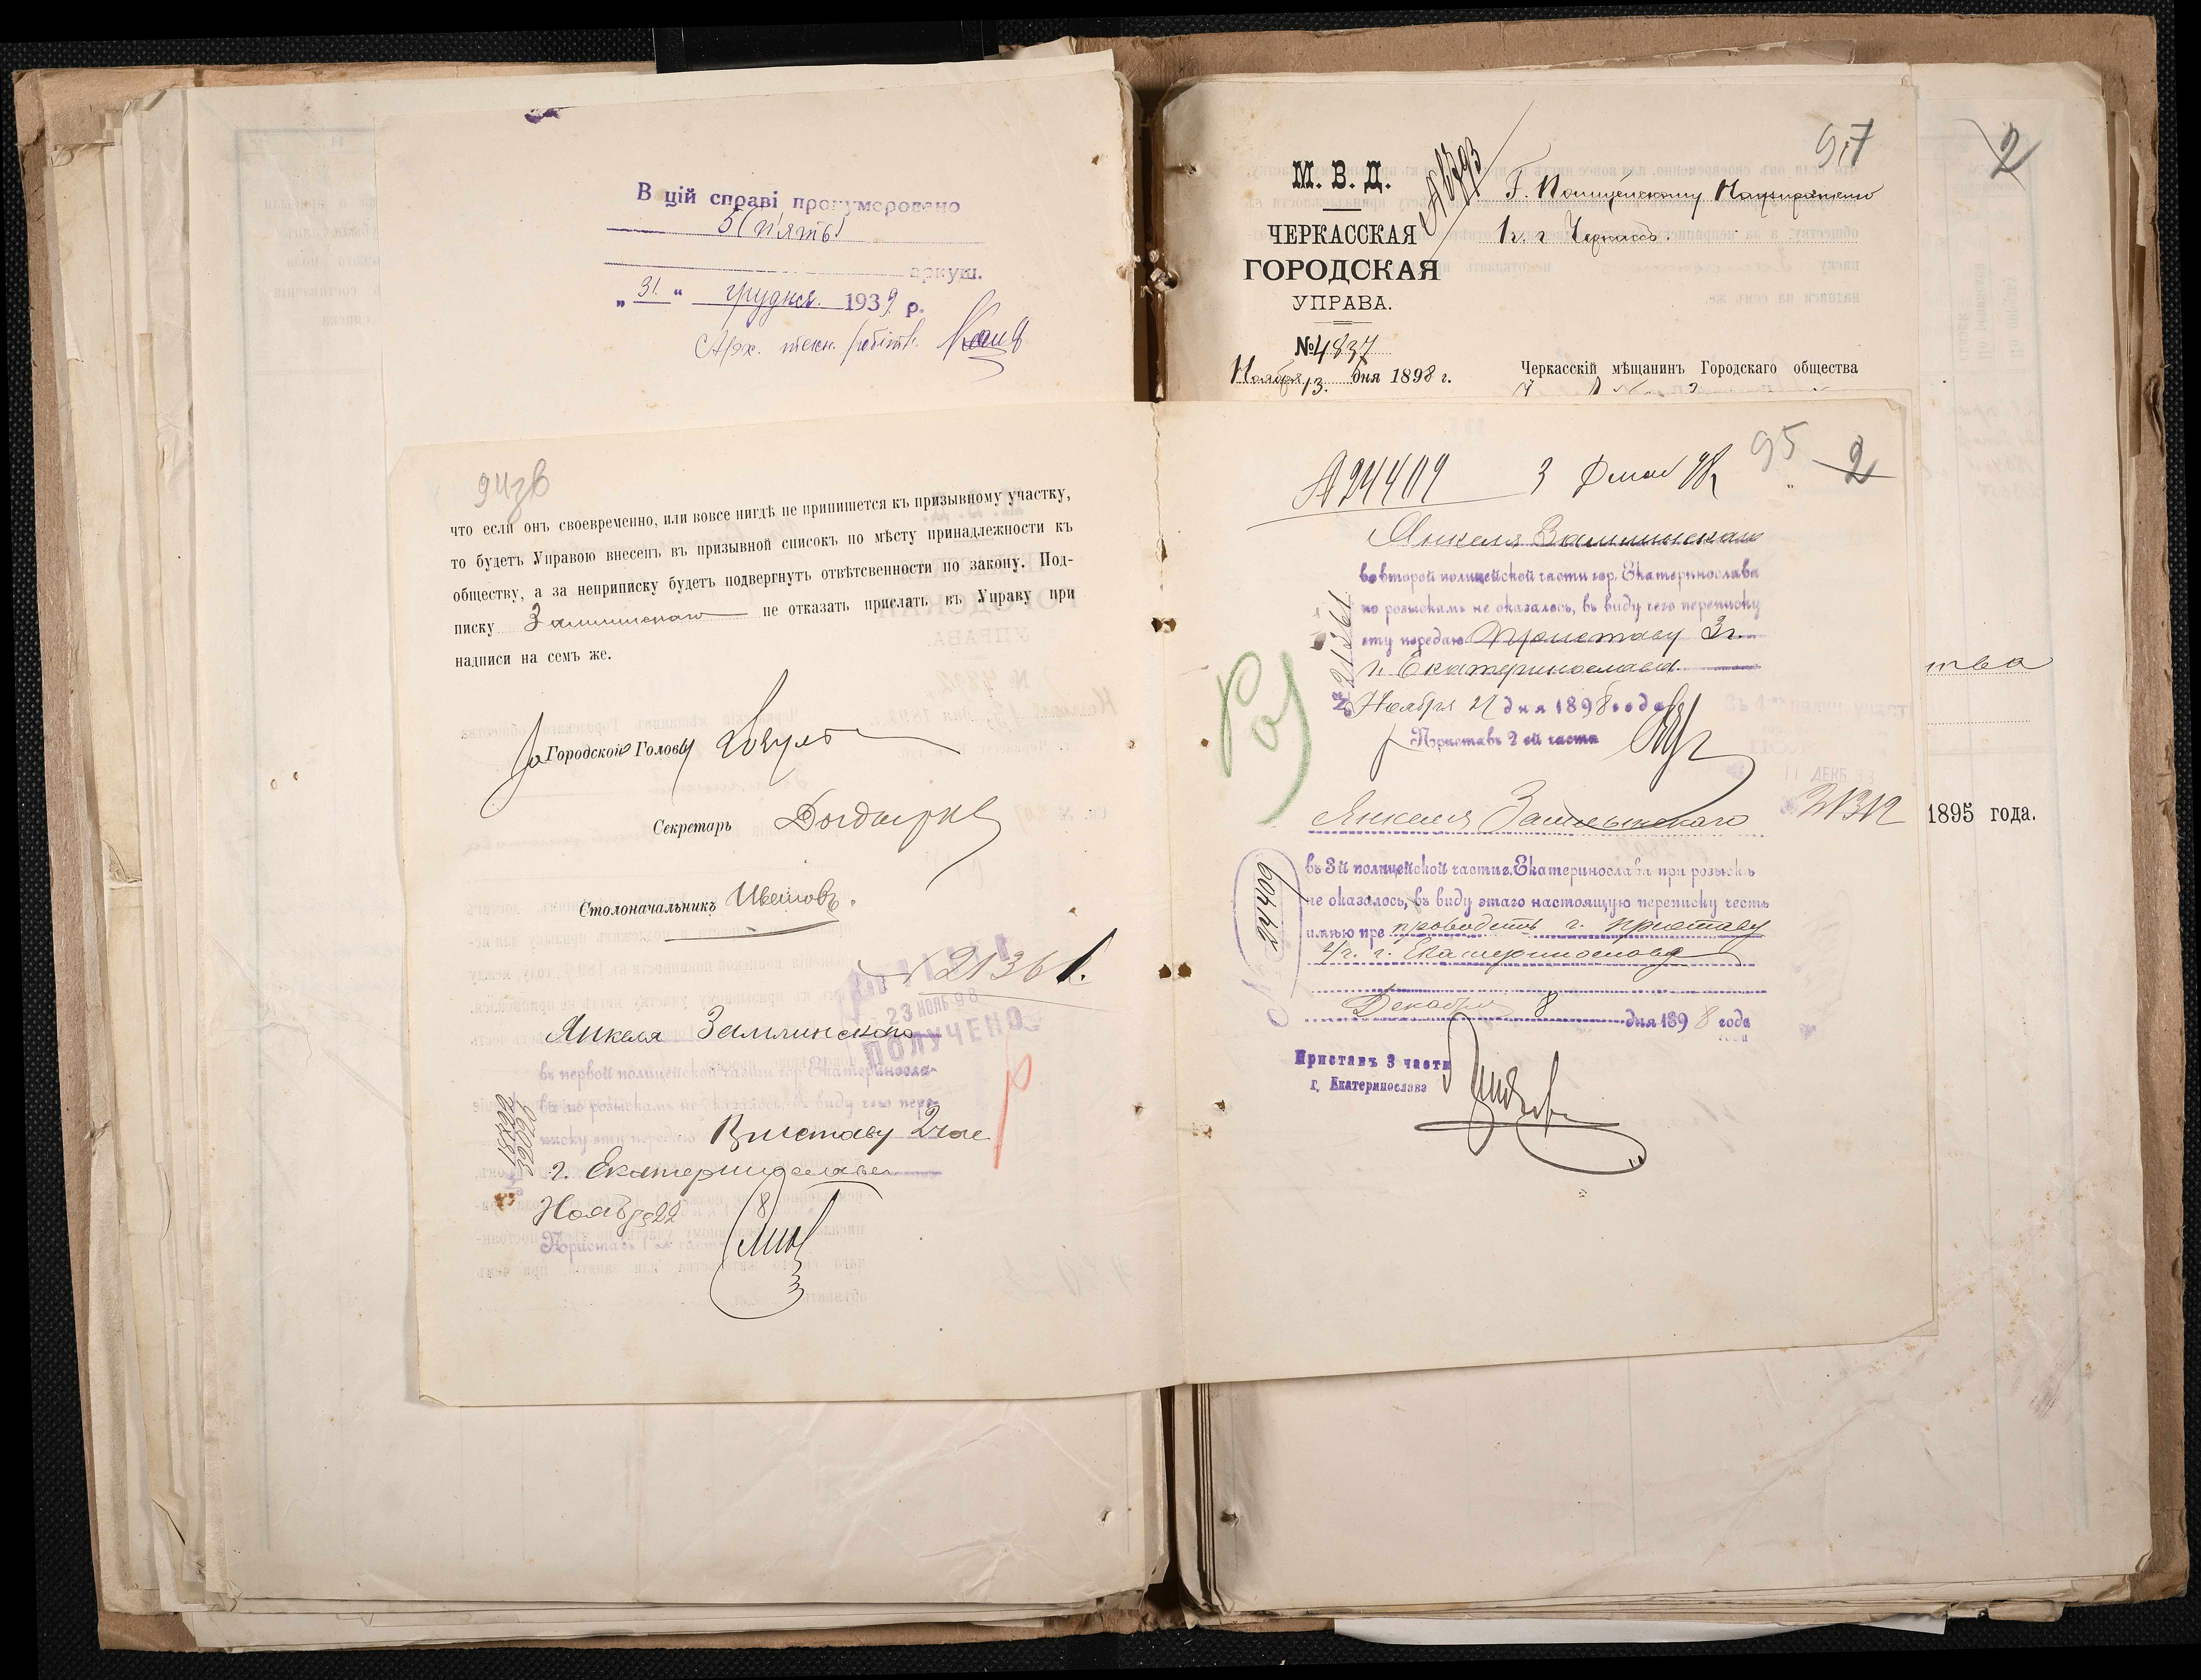 В цій справі пронумеровано
5 (п'ять)
аркуш.
„31“ грудня 1939 р.
Арх. техн. робітн.
94зв
что если онъ своевременно, или вовсе нигдѣ не припишется къ призывному участку,
то будетъ Управою внесенъ въ призывной списокъ по мѣсту принадлежности къ
обществу, а за неприписку будетъ подвергнутъ отвѣтсвенности по закону. Под-
писку Замлинскаго не отказать прислать въ Управу при
надписи на семъ же.
Городской Голова
Секретарь
Столоначальникъ
21361.
23 НОЯБ 98
ПОЛУЧЕНО
Янкеля Замлинскаго
въ первой полицейской части гор. Екатериносла-
ва по розыскамъ не оказалось, въ виду чего пере-
писку эту передаю Приставу 2 час.
г. Екатеринослава
Ноября 22
Приставъ 1-й части
97
М. В. Д.
ЧЕРКАССКАЯ
ГОРОДСКАЯ
УПРАВА.
№ 4837
Ноября 13 дня 1898 г.
Г. Полицейскому Надзирателю
1 ч. г. Черкассъ.
Черкасскій мѣщанинъ Городскаго общества
2
95
2
24409
3
Янкеля Замлинскаго
во второй полицейской части гор. Екатеринослава
по розыскамъ не оказалось, въ виду чего переписку
эту передаю Приставу 3 ч.
г. Екатеринослава
Ноября 27 дня 1898 года
Приставъ 2-ой части
№ 21361
Янкеля Замлинскаго
въ 3й полицейской части г. Екатеринослава при розыскѣ
не оказалось, въ виду этаго настоящую переписку честь
имѣю пре проводить г. Приставу
4 ч. г. Екатеринослава
Декабря 8 дня 1898 года
Приставъ 3 части
г. Екатеринослава
24409
11 ДЕКБ
1895 года.
тва